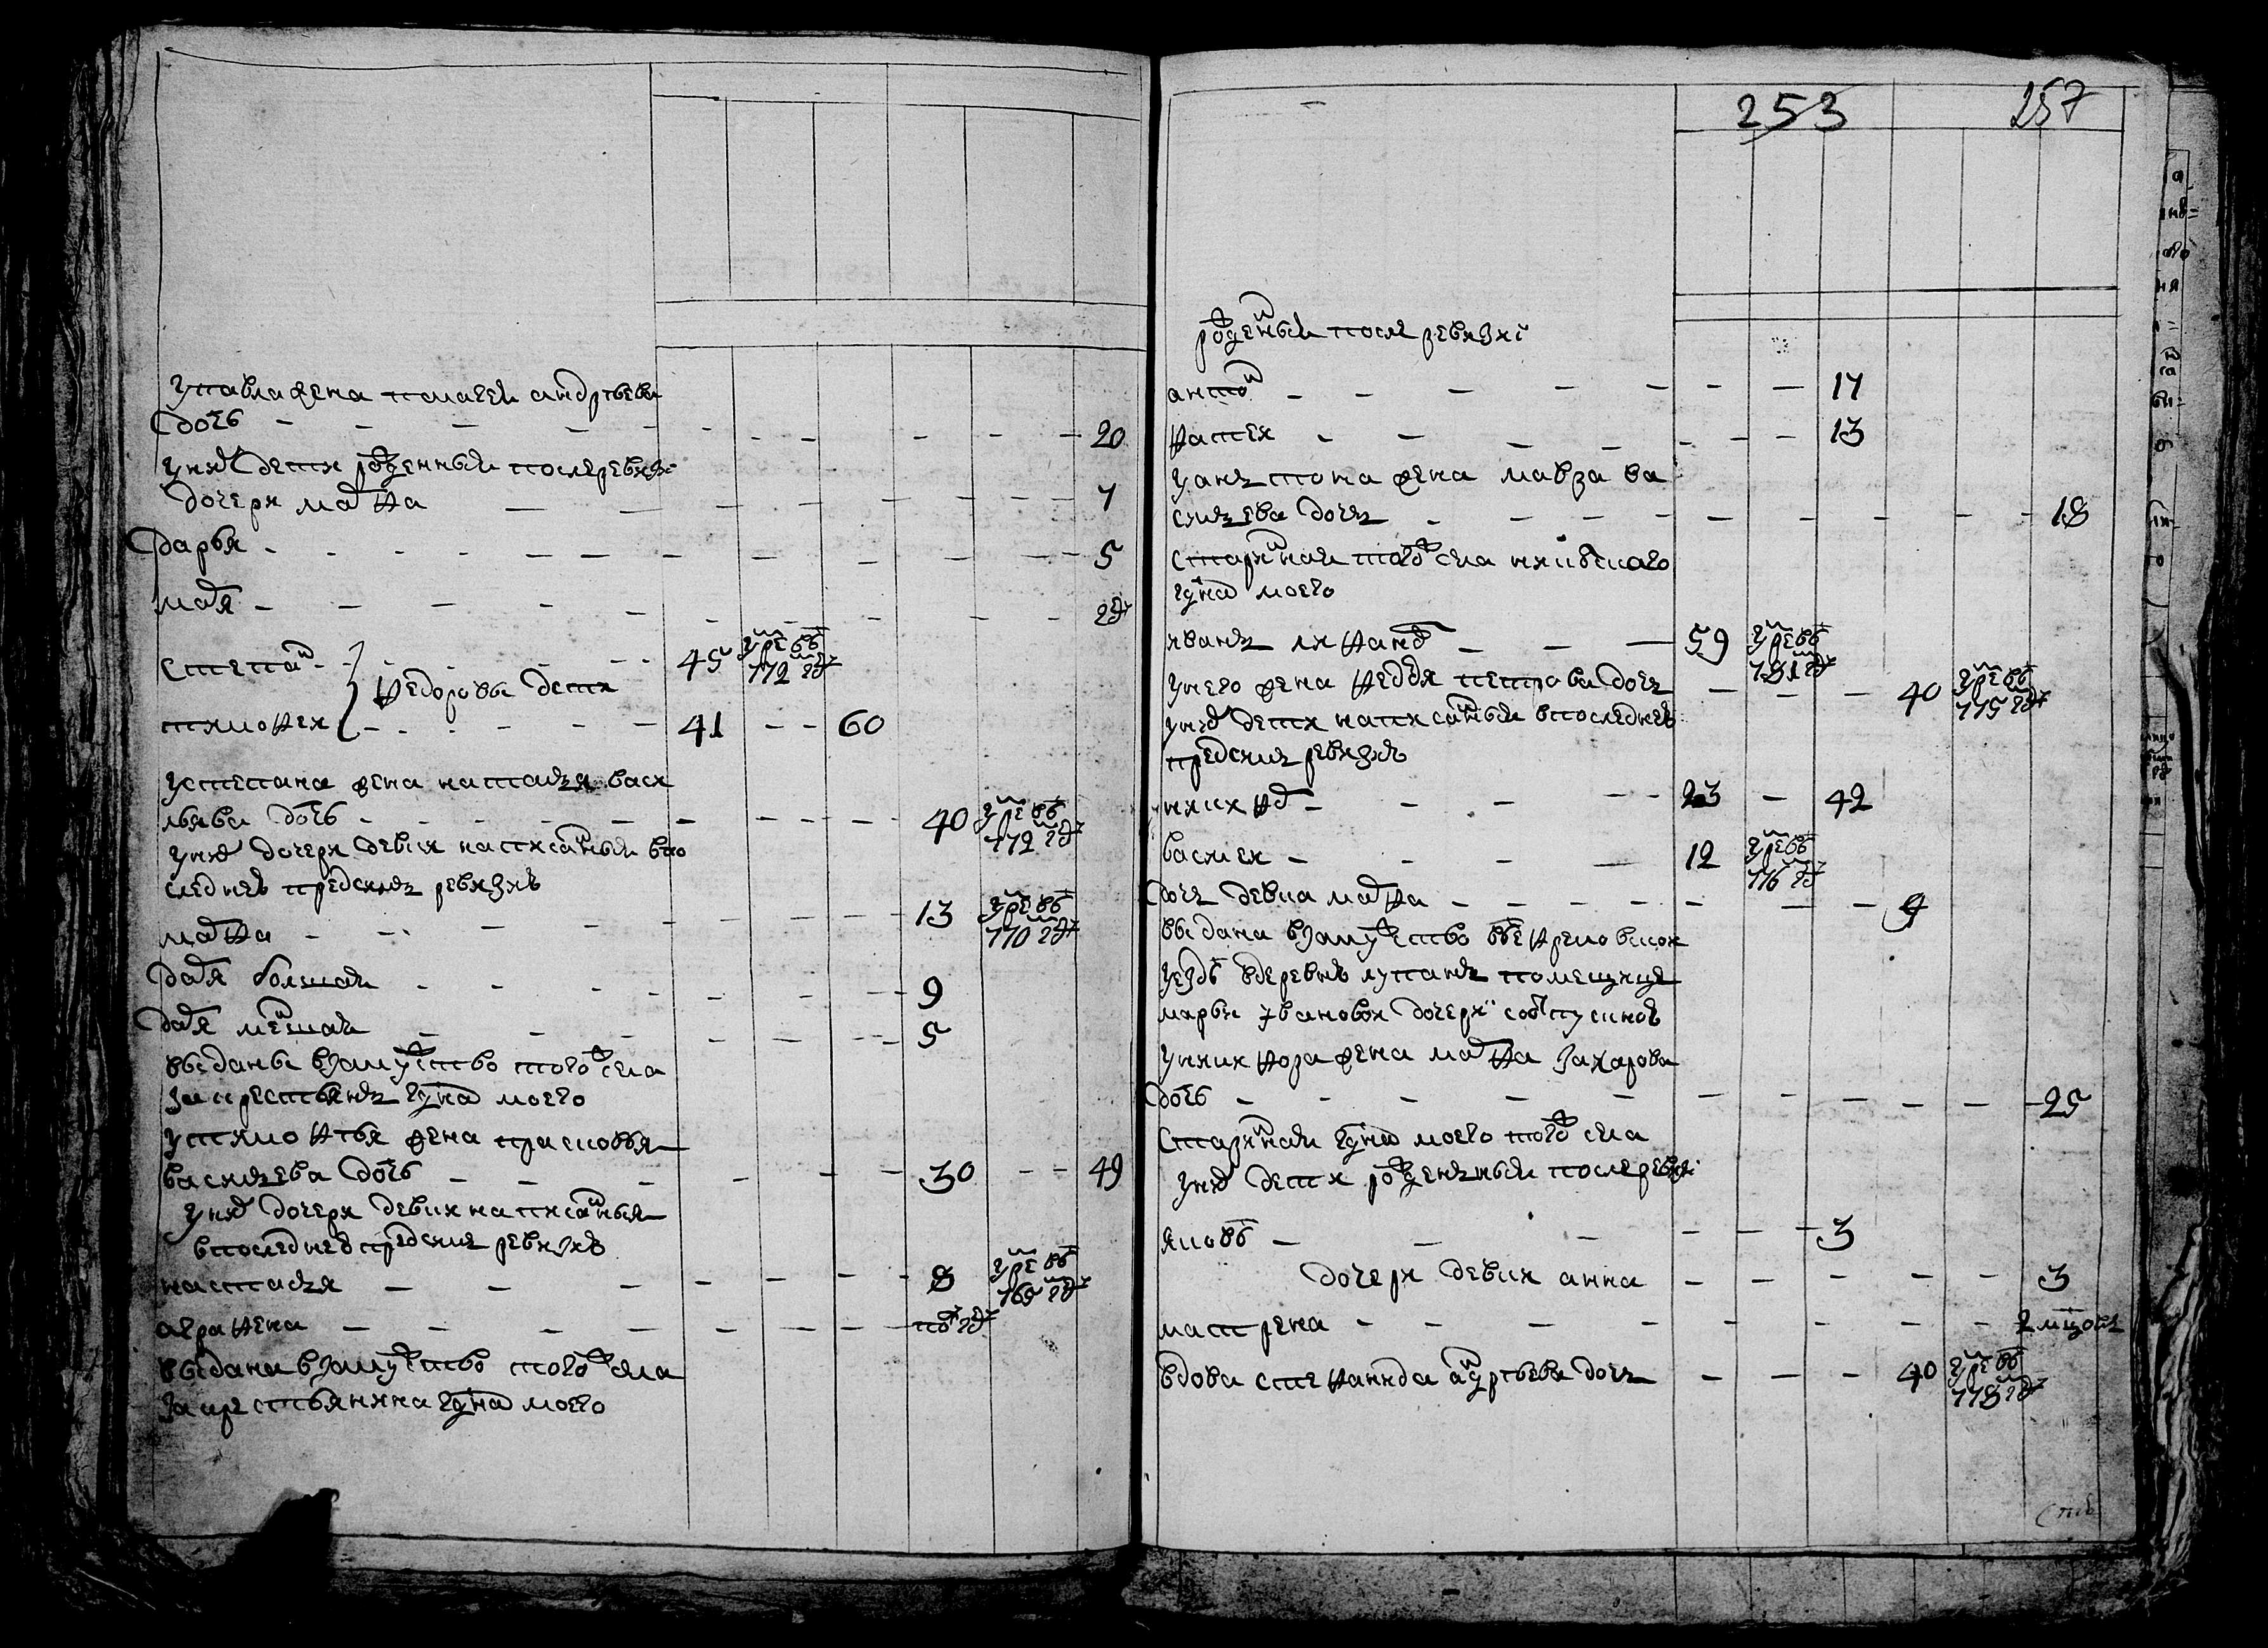 упавла жена палагея андреева
дочь - - - - - - - - - - - 20
унихъ дети рожденныя послеревизи
дочери марфа - - - - - - - 7
дарья - - - - - - - - - - - 5
марья - - - - - - - - - - - 2 го
степанъ - - - - - 45 умре въ 772 годе
федоровы дети
тимофеи - - - - - 41 - - 60
устепана жена настасья васи
льева дочь - - - - - - - - 40 умре въ 772 годе
унихъ дочери девки написанныя впо
следнеи предсимъ ревизии
марфа - - - - - - - - - 13 умре въ 770 годе
дарья большая - - - - - - - 9
дарья меншая - - - - - - - 5
выданы взамужество тогожъ села
закрестьянъ гдна моего
утимофея жена прасковья
васильева дочь - - - - - - 30 - - 49
унихъ дочери девки написанныя
впоследнеи предсимъ ревизии
настасья - - - - - - - 8 умре въ 765 годе
аграфена - - - - - - - - полгода
выдана взамужество тогожъ села
закрестьянина гдна моего
253 257
рожденныя после ревизи
антонъ - - - - - - - 17
фатеи - - - - - - - 13
уантона жена мавра ва
сильева дочь - - - - - - - - - 18
старинная тогожъ села
гдна моего
иванъ - - - 59 умре въ 781 годе
унего жена федосья петрова дочь - - - 40 умре въ 775 годе
унихъ дети написанныя впоследнеи
предсимъ ревизии
никифоръ - - - - - 23 - 42
васили - - - - 12 умре въ 776 годе
дочь девка марфа - - - - - - - 9
выдана взамужество въ ефремовскои
уездъ вдеревню лупань помещице
марьи ивановои дочери
уникифора жена марфа захарова
дочь - - - - - - - - - - 25
старинная гдна моего тогожъ села
унихъ дети рожденныя послеревизи
яковъ - - - - - - 3
дочери девки анна - - - - - 3
матрена - - - - - - - - 2 мцовъ
вдова стефанида андреева дочь - - - 40 умре въ 778 годе